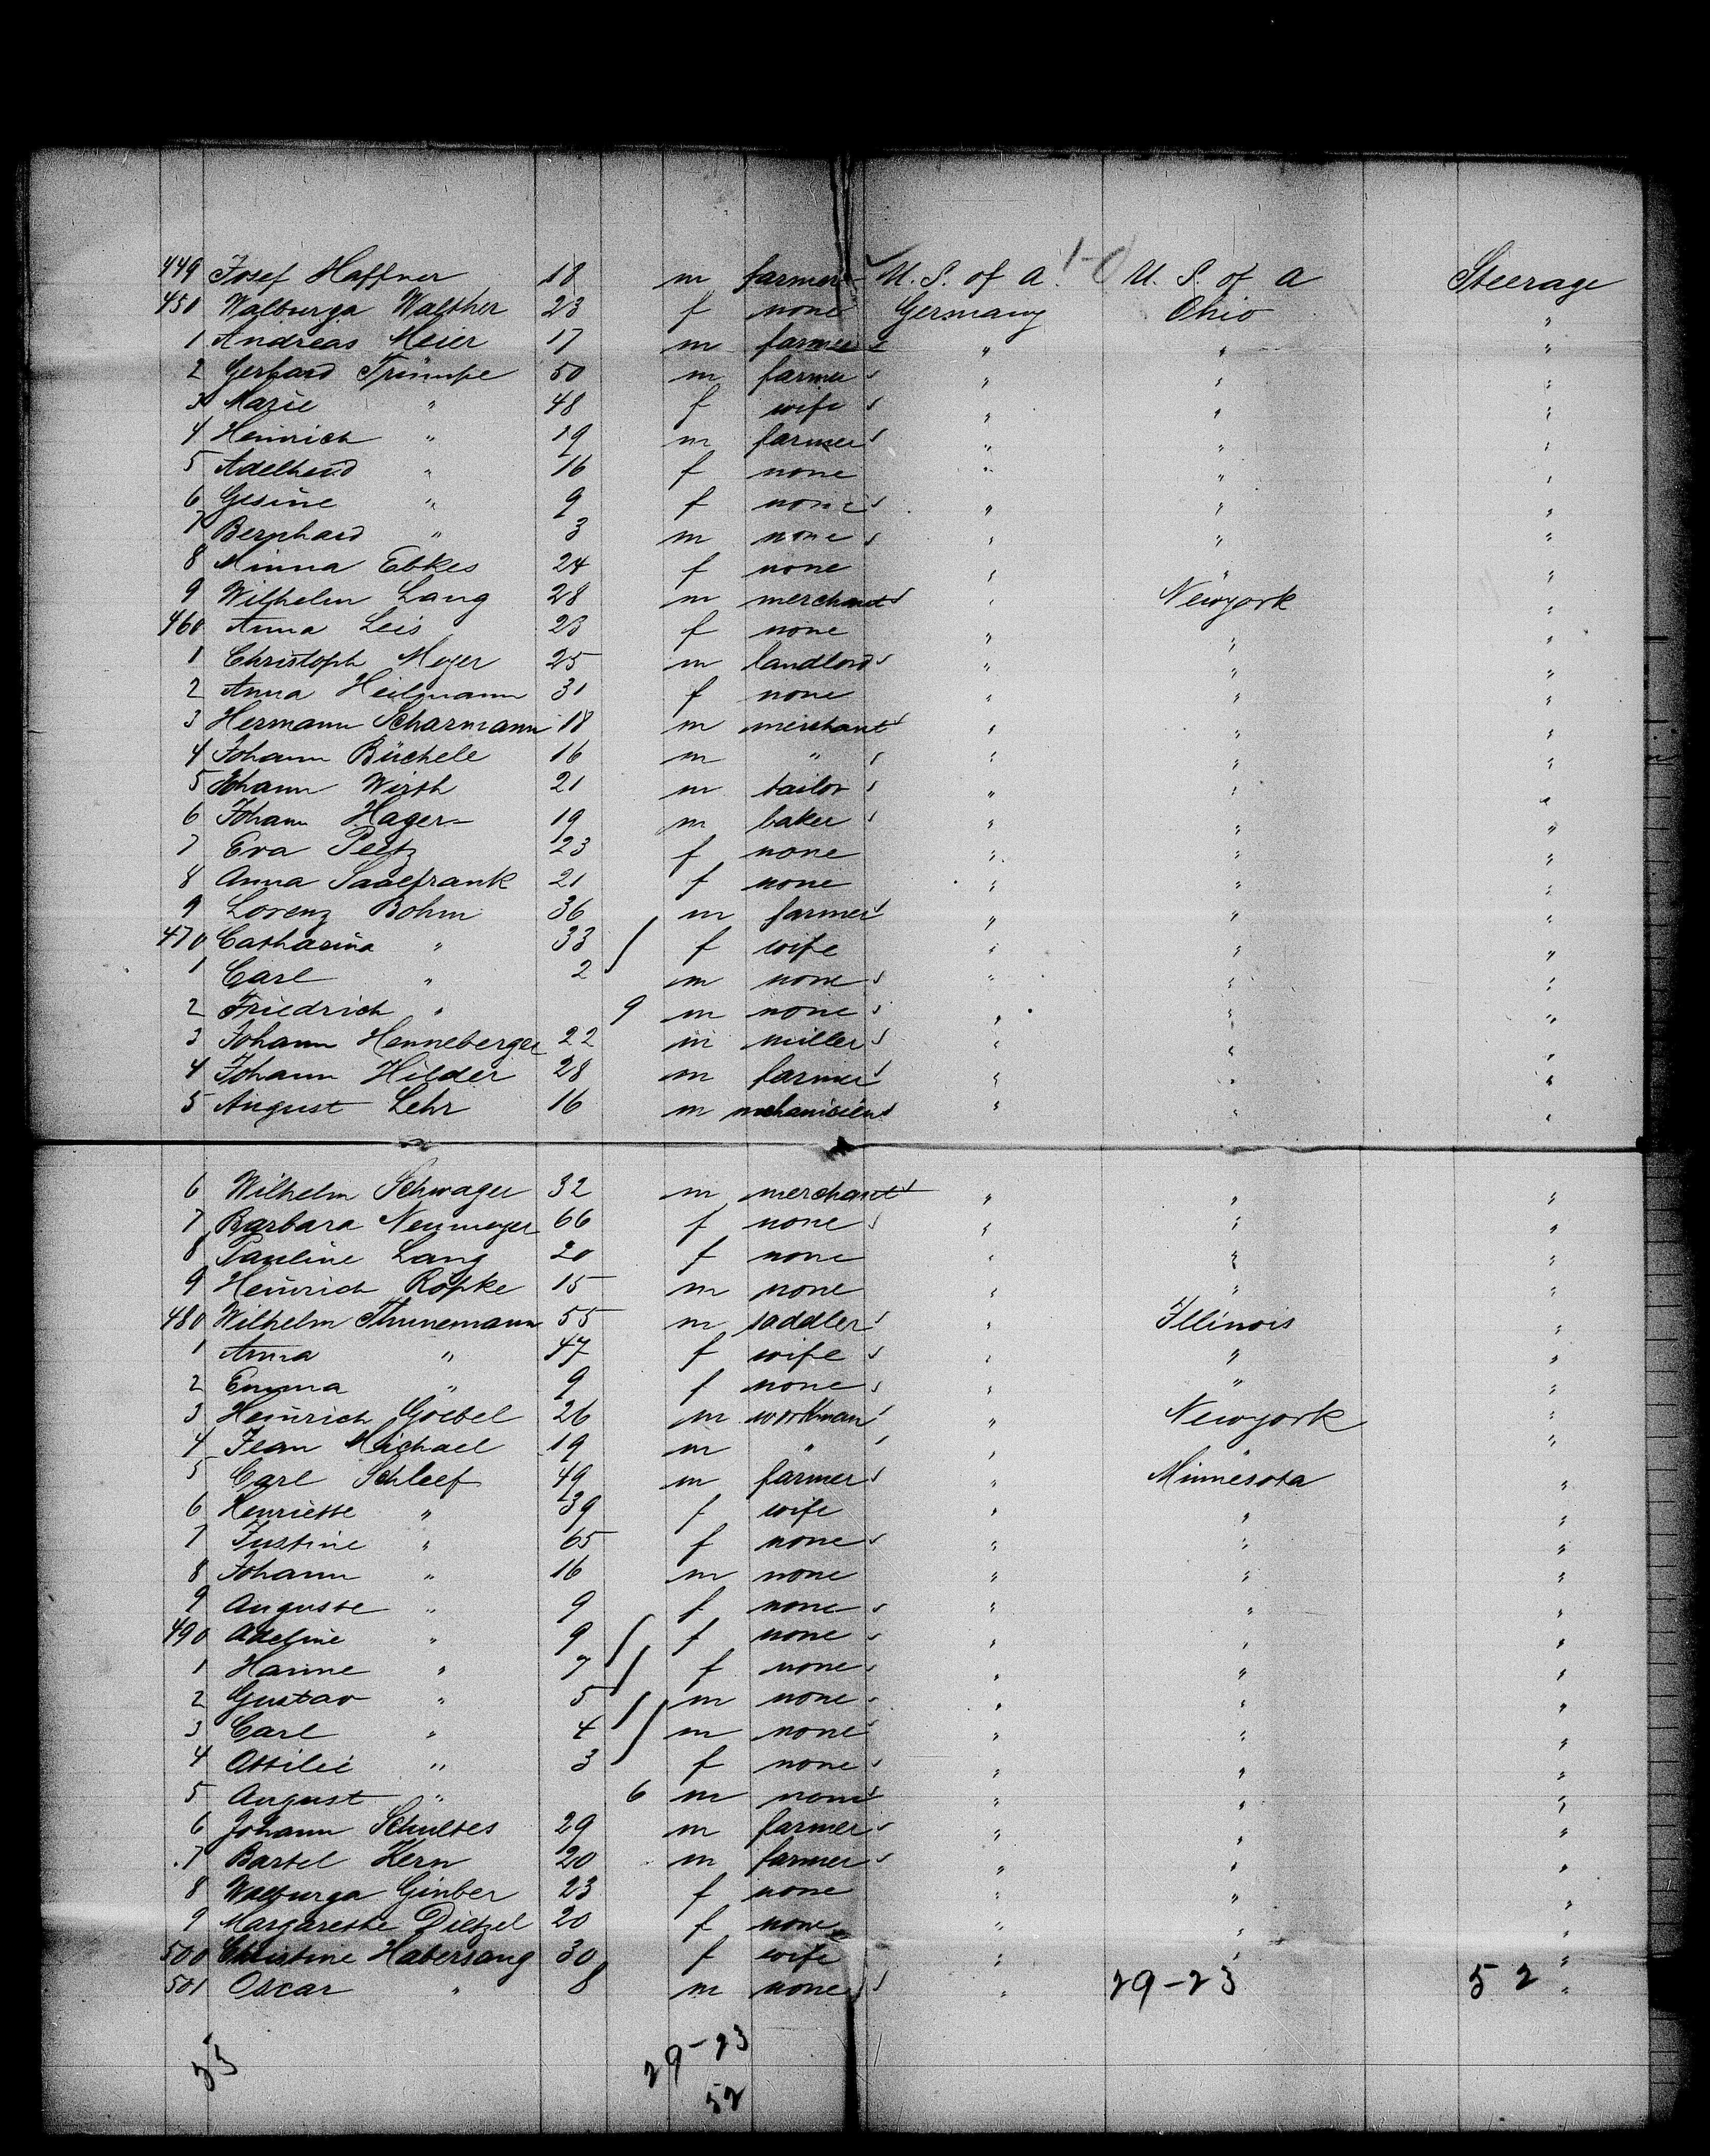 449 Josef Haffner 18 m farmer U. S. of A. 1-0 U. S. of A Steerage
450 Walburga Walther 23 f none Germany Ohio "
1 Andreas Meier 17 m farmer " " "
2 Gerhard Trümpe 50 m farmer " " "
3 Marie " 48 f wife " " "
4 Heinrich " 19 m farmer " " "
5 Adelheid " 16 f none " " "
6 Gesine " 9 f none " " "
7 Bernhard " 3 m none " " "
8 Minna Ebkes 24 f none " " "
9 Wilhelm Lang 28 m merchant " Newyork "
460 Anna Leis 23 f none " " "
1 Christoph Meyer 25 m landlord " " "
2 Anna Heilmann 31 f none " " "
3 Hermann Scharmann 18 m merchant " " "
4 Johann Büchele 16 m " " " "
5 Johann Wirth 21 m tailor " " "
6 Johann Hager 19 m baker " " "
7 Eva Peetz 23 f none " " "
8 Anna Saalfrank 21 f none " " "
9 Lorenz Bohm 36 m farmer " " "
470 Catharina " 33 f wife " " "
1 Carl " 2 m none " " "
2 Friedrich " 9 m none " " "
3 Johann Henneberger 22 m miller " " "
4 Johann Hilder 28 m farmer " " "
5 August Lehr 16 m mechanicien " " "
6 Wilhelm Schwager 32 m merchant " " "
7 Barbara Neumeyer 66 f none " " "
8 Pauline Lang 20 f none " " "
9 Heinrich Röpke 15 m none " " "
480 Wilhelm Thunemann 55 m saddler " Illinois "
1 Anna " 47 f wife " " "
2 Emma " 9 f none " " "
3 Heinrich Goebel 26 m workman " Newyork "
4 Jean Michael 19 m " " " "
5 Carl Schleef 49 m farmer " Minnesota "
6 Henriette " 39 f wife " " "
7 Justine " 65 f none " " "
8 Johann " 16 m none " " "
9 Auguste " 9 f none " " "
490 Adeline " 9 f none " " "
1 Hanne " 7 f none " " "
2 Gustav " 5 m none " " "
3 Carl " 4 m none " " "
4 Ottilie " 3 f none " " "
5 August " 6 m none " " "
6 Johann Schultes 29 m farmer " " "
7 Bartel Kern 20 m farmer " " "
8 Walburga Ginber 23 f none " " "
9 Margarethe Dietzel 20 f none " " "
500 Christine Habersang 30 f wife " " "
501 Oscar " 8 m none " 29-23 52 "
53 29-23
52